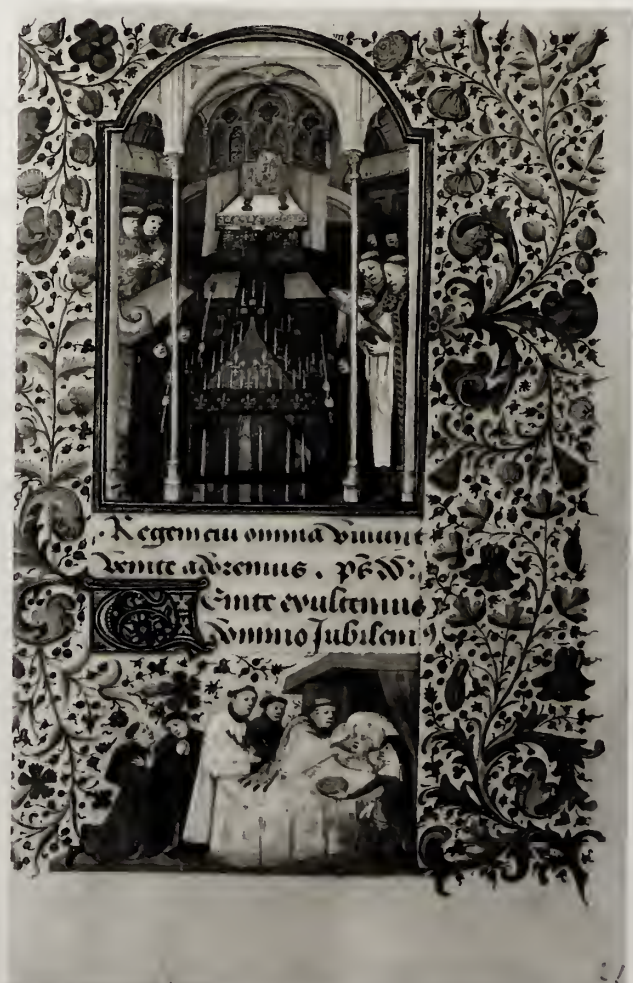 Regem cui omnia vivunt
venite adoremus. ps̄ dd̄.
Venite exultemus
domino Jubilem9
21